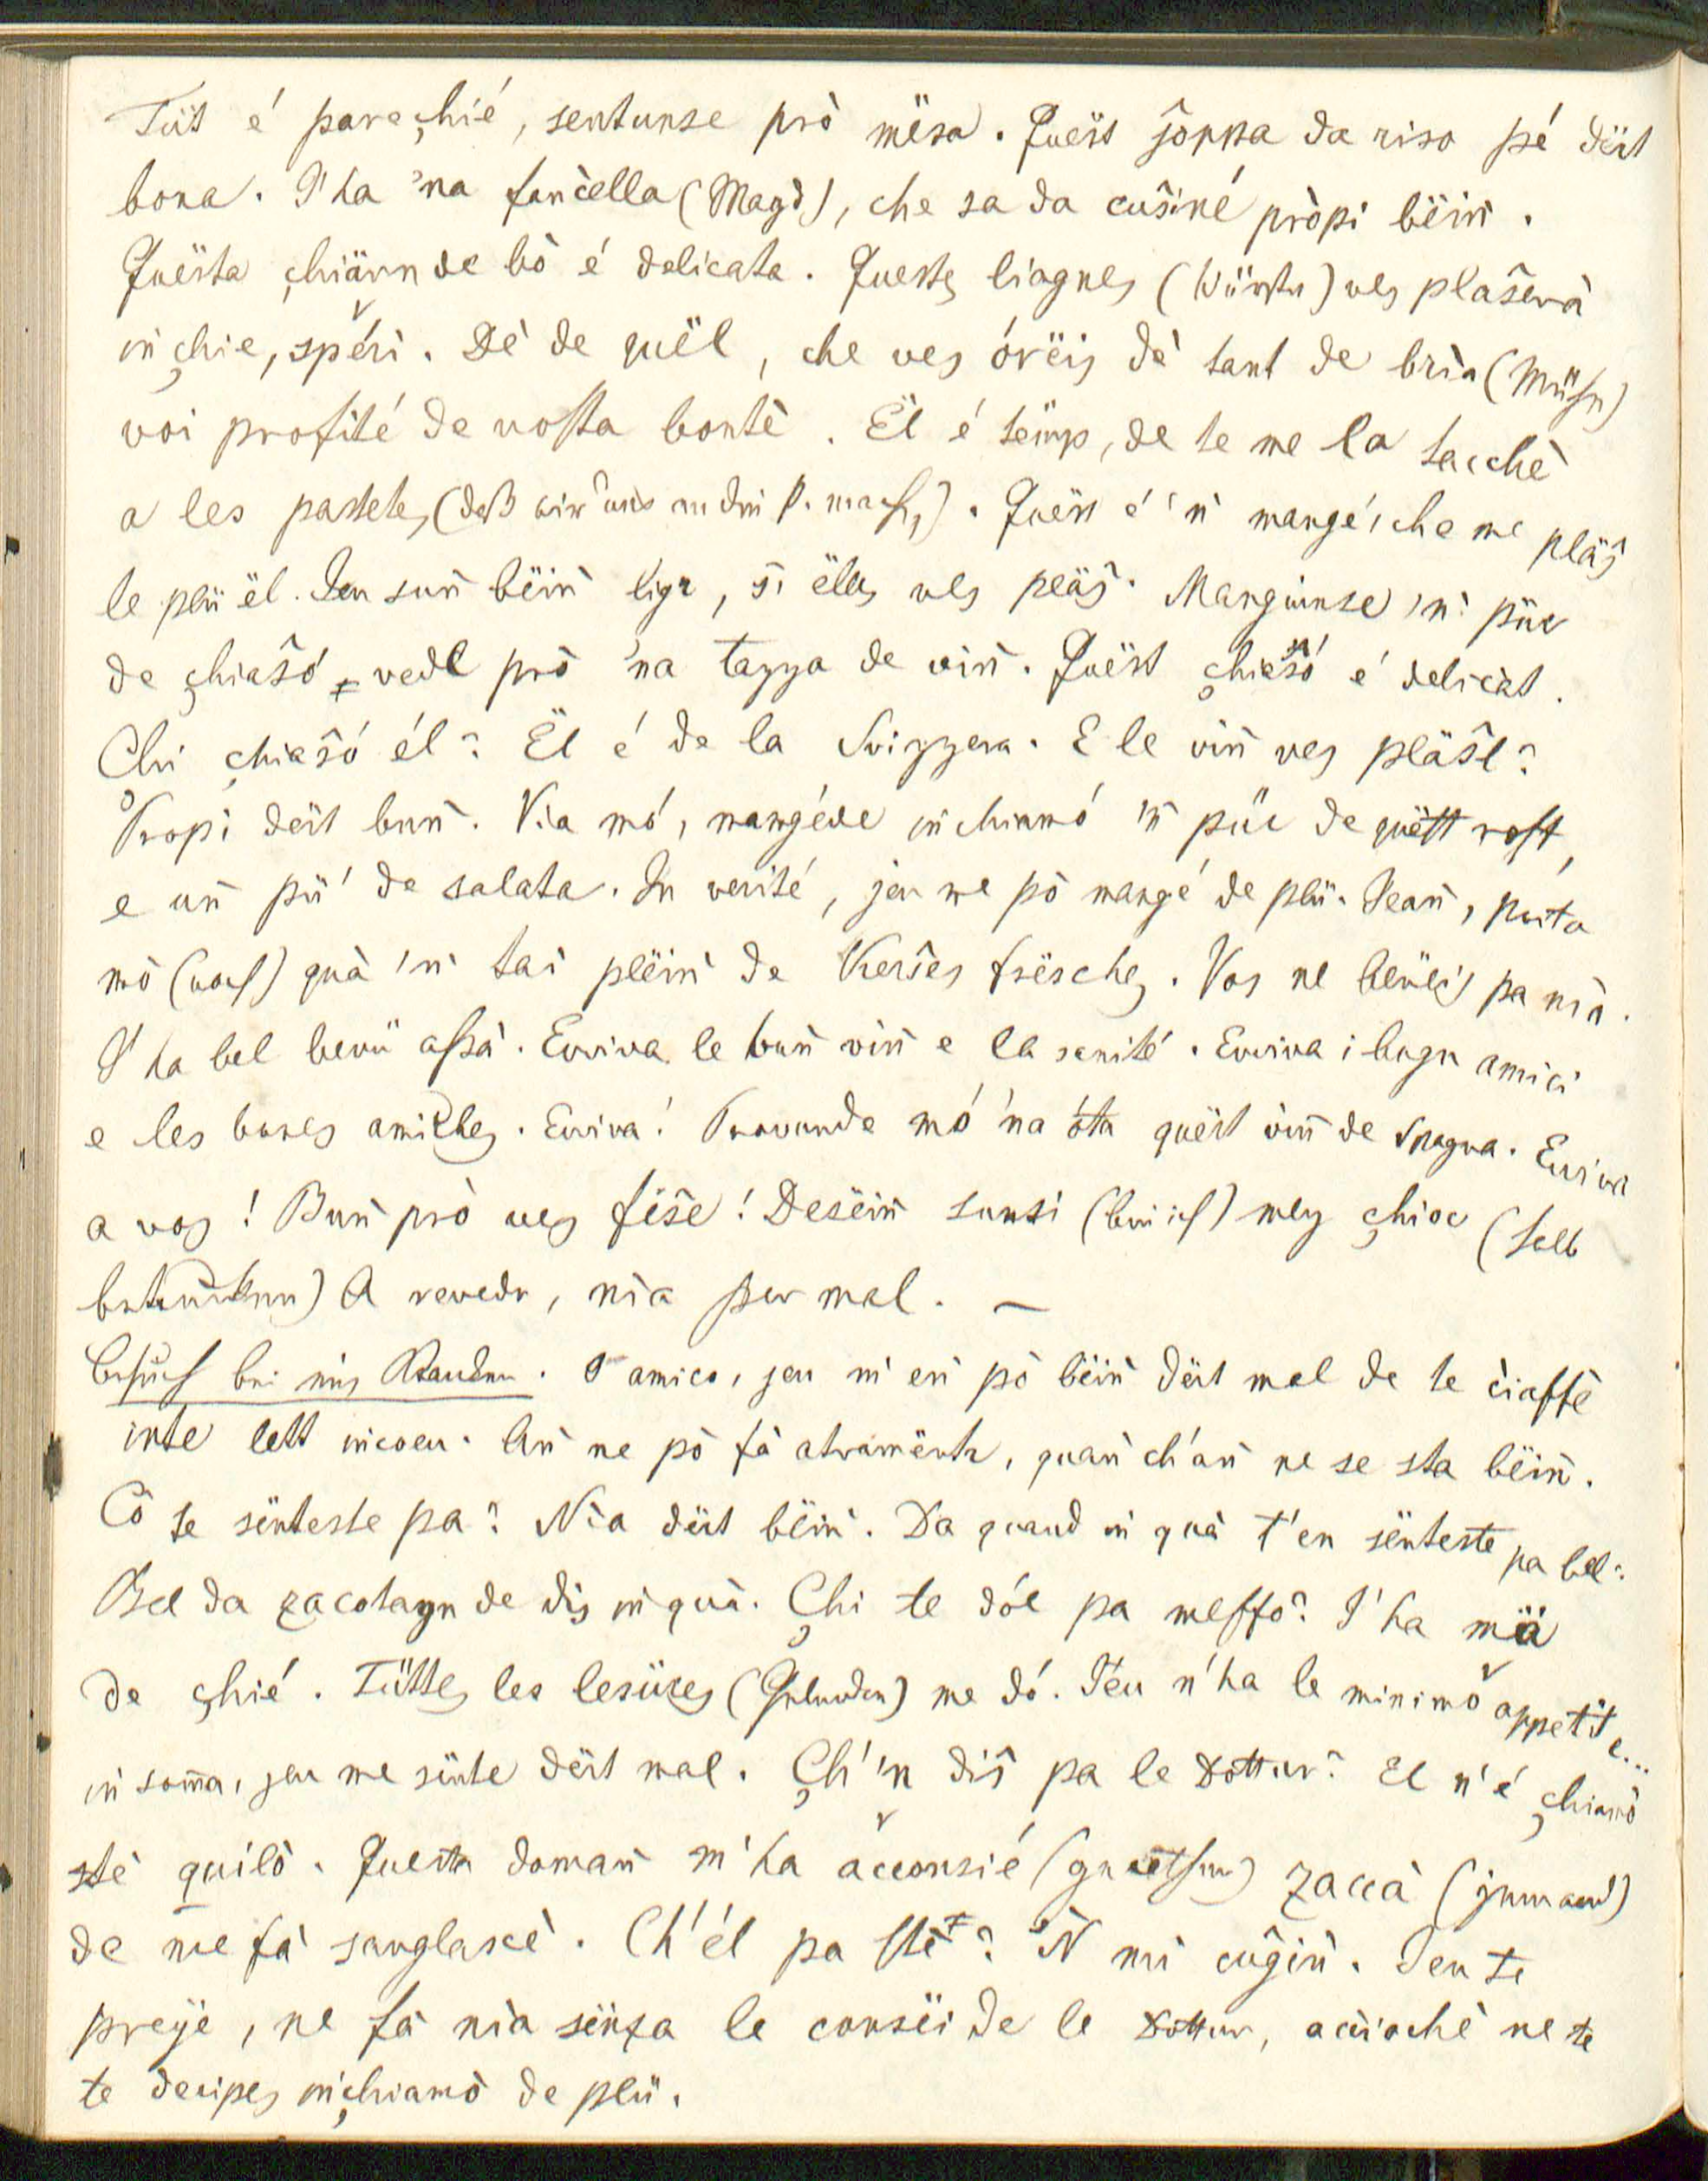 Tüt é parec̨hié, sentunse prò mësa. Quëst s̑oppa da riso pé dërt
bona. I' ha 'na fancella (Magd), che sa da cus̑iné pròpi bëin̄.
Quësta c̨hiärn de bò é delicata. Queste̩s liagnes (Würste) ves plas̑arà
in̄c̨hie, spéri. Dè de quël, che ves órëis dè tant de brìa (Mühe)
voi profité de vosta bontè. Ël é tëmp, de te me la tacchè
a les pastetes (daß wir uns an die P. mach.). Quëst é 'n̄ mangé, che me pläs̑
le plü ël. Jeu sun̄ bëin̄ ligr, s' ëlles ves pläs̑. Mangiunse 'n̄ püc
de c̨hias̑ó vedl prò 'na tazza de vin̄. Quëst c̨hias̑ó é delicàt.
Chi c̨hias̑ó él? Ël é de la Svizzera. E le vin̄ ves pläs̑l?
Propi dërt bun̄. Via mó, mangéde in̄chiamó 'n̄ püc de quëtt rost,
e un̄ pü' de salata. In verité, jeu ne pò mangé de plü. Jean̄, porta
mò (noch) quà 'n̄ tai plëin̄ de Kers̑es frësches. Vos ne bevëis pa nia.
I' ha bel bevü assà. Evviva le bun̄ vin̄ e la sanité. Evviva i bugn amici
e les bones amiches. Evviva! Provunde mó 'na óta quëst vin̄ de Spagna. Evviva
a vos! Bun̄ prò ves fés̑e! Desëin̄ sunsi (bin ich) mes c̨hioc (halb
betrunken) A revedr, nia per mal. —
Besuch bei eing Kranken. O amico, jeu m' en pò bëin̄ dërt mal de te ciaffè
inte lett incoeu. An̄ ne pò fà atramënte, quan̄ ch'an̄ ne se sta bëin̄.
Cò te sënteste pa? Nia dërt bëin̄. Da quand in quà t'en sënteste pa bel?
Bel da zacotagn de dis in quà. C̨hi te dól pa messo? I' ha mä
de c̨hié. Tüttes les lesüres (Gelenken) me dó. Jeu n'ha le minimo appetite...
in som̄a, jeu me sënte dërt mal. C̨h'n dis̑ pa le Dottur? El n'é c̨hiamò
stè quilò. Questa doman̄ m'ha acconsié (gerathen) zaccà (jemand)
de me fà sanglascè. Ch'él pa stè? 'N mi cus̑in̄. Jeu te
preïe, ne fà nia sënza le consëi de le Dottur, acciochè ne te
te decipes in̄chiamò de plü.